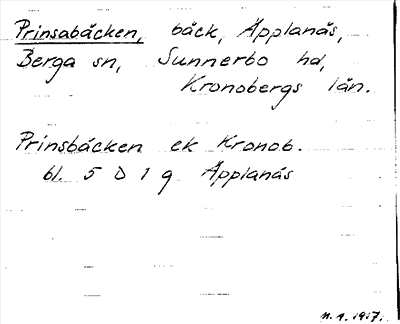 Prinsabäcken, bäck, Äpplanäs,
Berga sn, Sunnerbo hd,
Kronobergs län.
Prinsbäcken ek Kronob.
bl. 5 D 1 g Äpplanäs
n. 1. 1917.